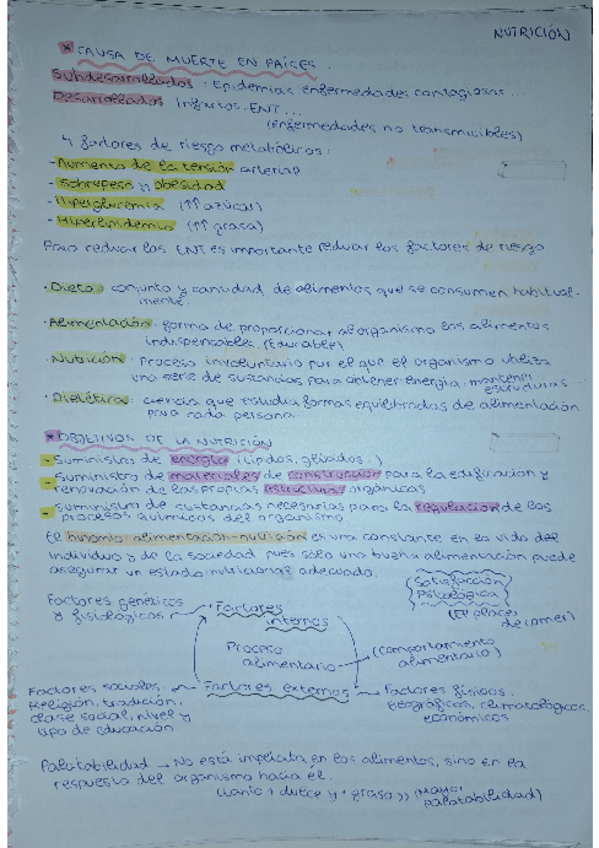 NUTRICIÓN
* CAUSA DE MUERTE EN PAÍSES.
Subdesarrollados: Epidemias enfermedades contagiosas...
Desarrollados: Infartos, ENT...
(Enfermedades no transmisibles)
4 factores de riesgo metabólicos:
- Aumento de la tensión arterial
- Sobrepeso y obesidad
- Hiperglucemia (↑↑ azúcar)
- Hiperlipidemia (↑↑ grasa)
Para reducir las ENT es importante reducir los factores de riesgo
· Dieta: conjunto y cantidad de alimentos que se consumen habitual-
mente.
· Alimentación: forma de proporcionar al organismo los alimentos
indispensables. (Educable)
· Nutrición: Proceso involuntario por el que el organismo utiliza
una serie de sustancias para obtener energía, mantener
estructuras...
· Dietética: ciencia que estudia formas equilibradas de alimentación
para cada persona.
* OBJETIVOS DE LA NUTRICIÓN
- Suministro de energía (lípidos, glúcidos..)
- Suministro de materiales de construcción para la edificación y
renovación de las propias estructuras orgánicas
- Suministro de sustancias necesarias para la regulación de los
procesos químicos del organismo.
El binomio alimentación-nutrición es una constante en la vida del
individuo y de la sociedad pues sólo una buena alimentación puede
asegurar un estado nutricional adecuado.
(Satisfacción
Psicológica)
(El placer
de comer)
Factores genéticos
y fisiológicos
Factores
internos
Proceso
alimentario
(comportamiento
alimentario)
Factores sociales:
Religión, tradición,
clase social, nivel y
tipo de educación
Factores externos
Factores físicos:
geográficos, climatológicos,
económicos
Palatabilidad → No está implícita en los alimentos, sino en la
respuesta del organismo hacia él.
Cuanto + dulce y + graso >> (Mayor
palatabilidad)